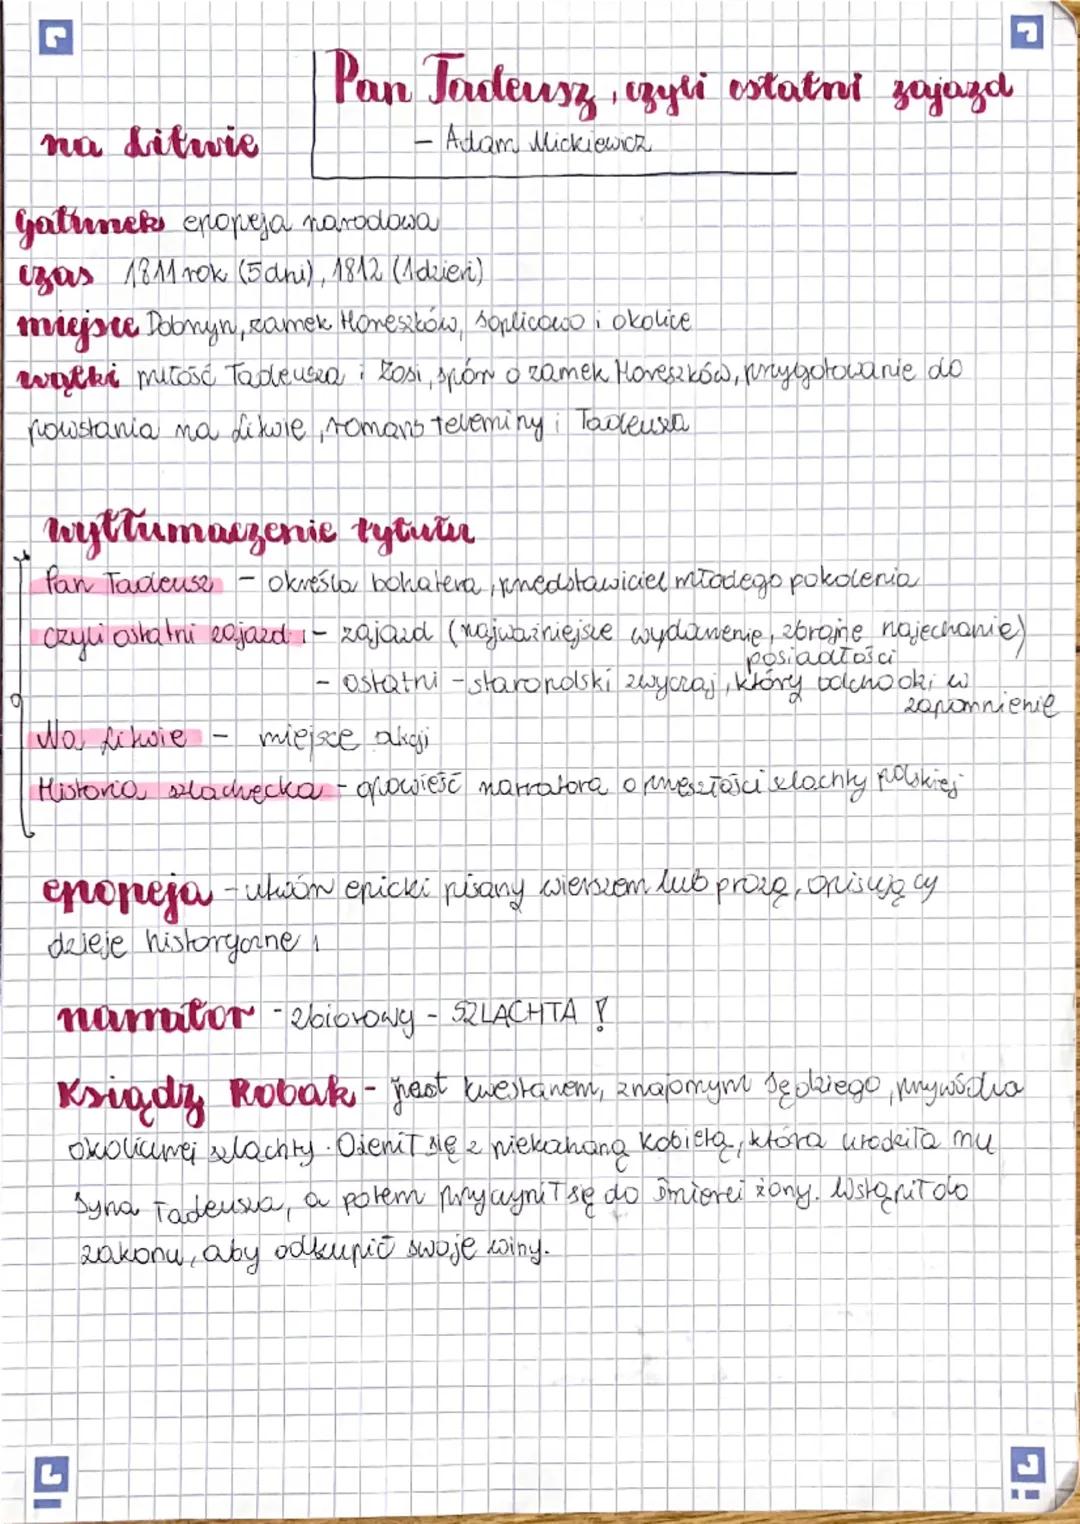 Pan Tadeusz, czyli ostatni zajazd
na Litwie
- Adam Mickiewicz
gatunek epopeja narodowa
czas 1811 rok (5 dni), 1812 (1 dzień)
miejsce Dobrzyn, zamek Horeszków, Soplicowo i okolice
wątki miłość Tadeusza i Zosi, spór o zamek Horeszków, przygotowanie do
powstania na Litwie, romans Telimeny i Tadeusza
wytłumaczenie tytułu
Pan Tadeusz - określa bohatera, przedstawiciel młodego pokolenia
czyli ostatni zajazd - zajazd (najważniejsze wydarzenie, zbrojne najechanie)
posiadłości
- ostatni - staropolski zwyczaj, który odchodzi w
zapomnienie
Na Litwie - miejsce akcji
Historia szlachecka - opowieść narratora o przeszłości szlachty polskiej
epopeja - utwór epicki pisany wierszem lub prozą, opisujący
dzieje historyczne
narrator - zbiorowy - SZLACHTA !
Ksiądz Robak - jest kwestarzem, znajomym Sędziego, przywódca
okolicznej szlachty. Ożenił się z niekochaną kobietą, która urodziła mu
syna Tadeusza, a potem przyczynił się do śmierci żony. Wstąpił do
zakonu, aby odkupić swoje winy.